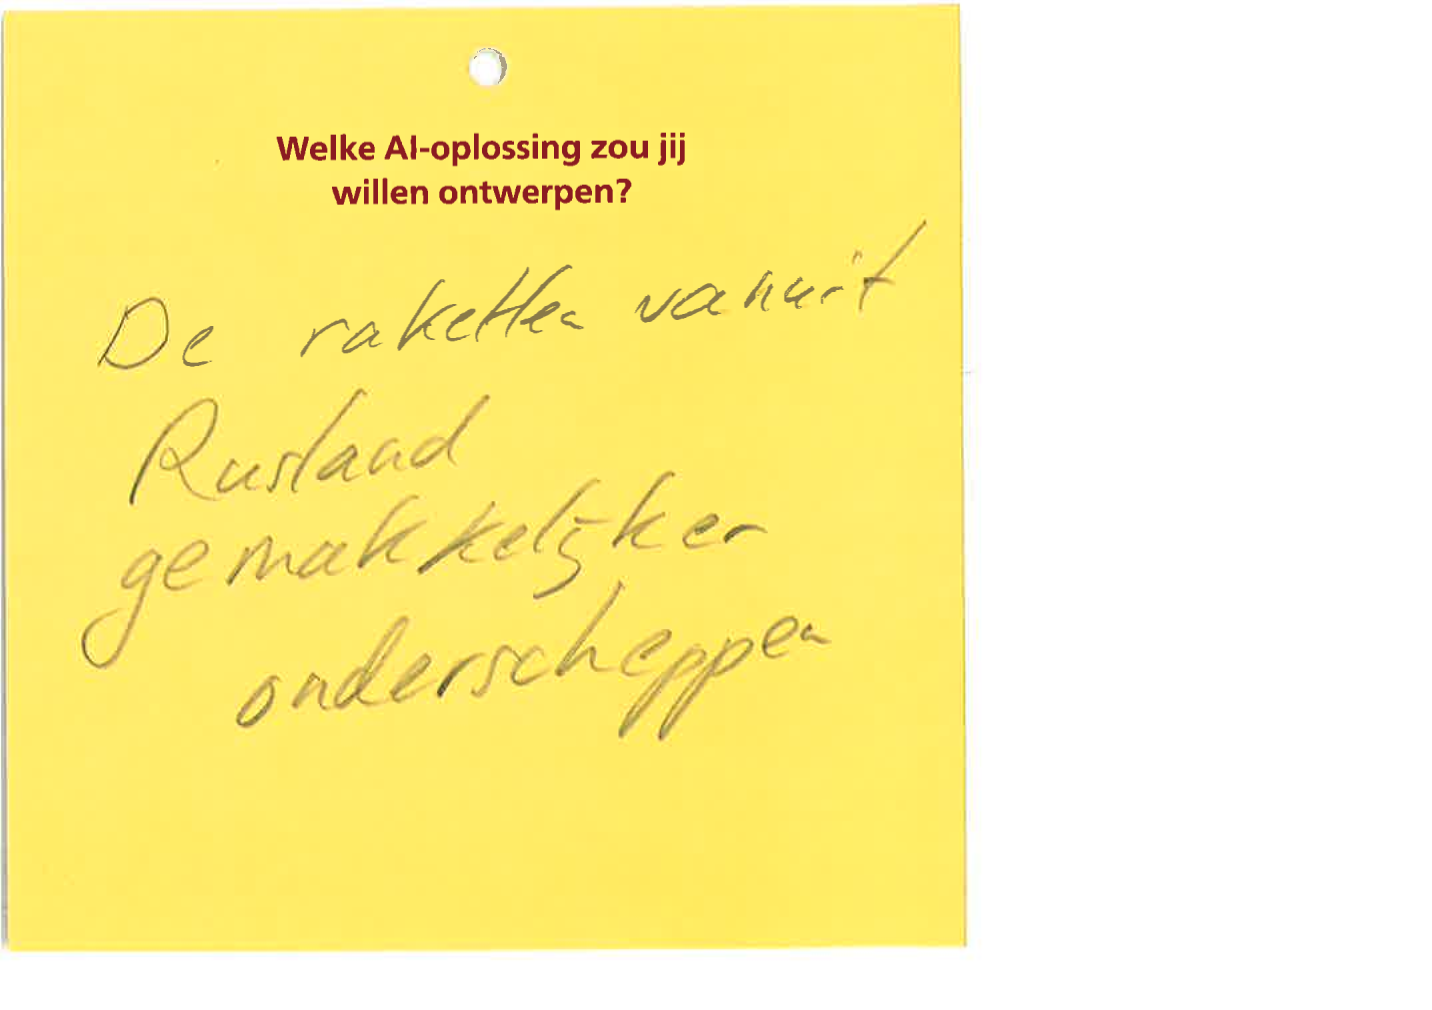 Welke AI-oplossing zou jij
willen ontwerpen?
De raketten vanuit
Rusland
gemakkelijker
onderscheppen